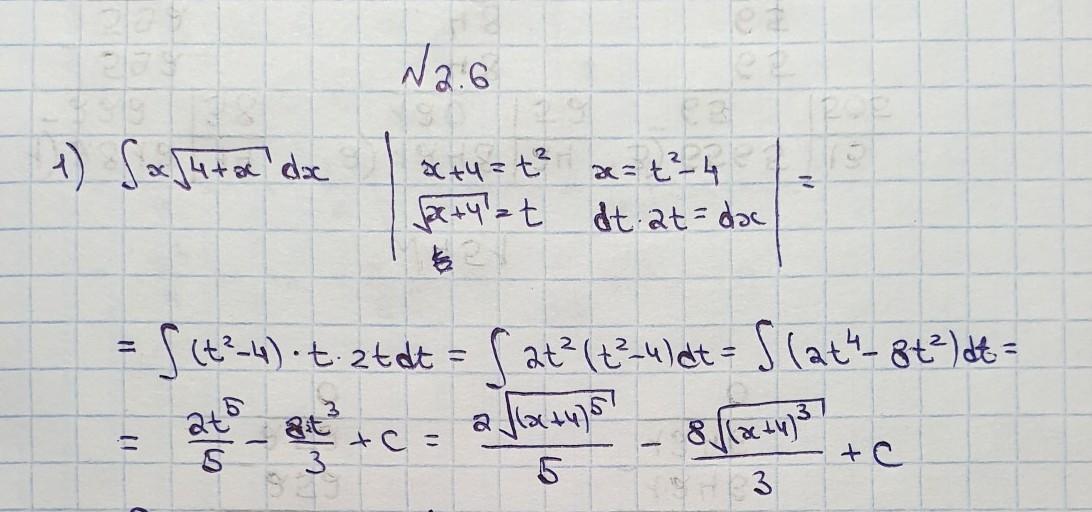 № 2.6
1) ∫x√(4+x) dx | x+4 = t² x = t² - 4 | =
√(x+4) = t dt · 2t = dx
= ∫(t²-4) · t · 2t dt = ∫ 2t² (t²-4) dt = ∫(2t⁴ - 8t²) dt =
= 2t⁵/5 - 8t³/3 + C = 2√((x+4)⁵)/5 - 8√((x+4)³)/3 + C